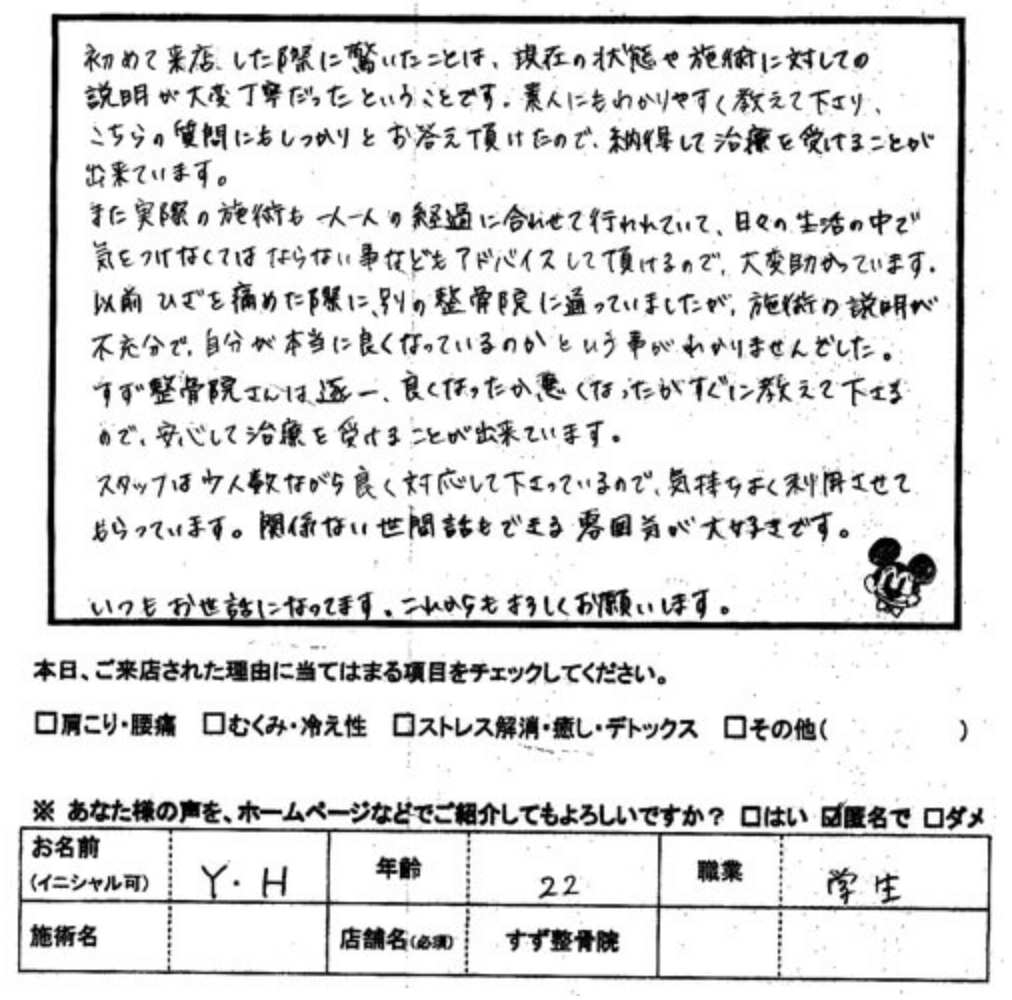 初めて来店した際に驚いたことは、現在の状態や施術に対しての
説明が大変丁寧だったということです。素人にもわかりやすく教えて下さり、
こちらの質問にもしっかりとお答え頂けたので、納得して治療を受けることが
出来ています。
また実際の施術も一人一人の経過に合わせて行われていて、日々の生活の中で
気をつけなくてはならない事などもアドバイスして頂けるので、大変助かっています。
以前ひざを痛めた際に、別の整骨院に通っていましたが、施術の説明が
不充分で、自分が本当に良くなっているのかという事がわかりませんでした。
すず整骨院さんは逐一、良くなったか悪くなったかすぐに教えて下さる
ので、安心して治療を受けることが出来ています。
スタッフは少人数ながら良く対応して下さっているので、気持ちよく利用させて
もらっています。関係ない世間話もできる雰囲気が大好きです。
いつもお世話になってます。これからもよろしくお願いします。
本日、ご来店された理由に当てはまる項目をチェックしてください。
□肩こり・腰痛 □むくみ・冷え性 □ストレス解消・癒し・デトックス □その他( )
※ あなた様の声を、ホームページなどでご紹介してもよろしいですか？ □はい ☑匿名で □ダメ
お名前 (イニシャル可) Y・H 年齢 22 職業 学生
施術名 店舗名(必須) すず整骨院